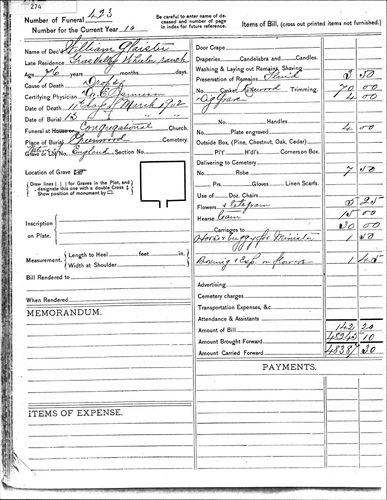 274
Number of Funeral 423
Number for the Current Year 10
Be careful to enter name of deceased and number of page in index for future reference.
Items of Bill, (cross out printed items not furnished.)
Name of Dec'd William Glaister
Late Residence Grass Valley Wheeler ranch
Age 76 years months days.
Cause of Death Dropsy
Certifying Physician
Date of Death 11 day of March 1902
Date of Burial 13
Funeral at House Congregational Church.
Place of Burial Greenwood Cemetery.
Grave or Lot No. England Section No.
Native of
Location of Grave
Draw lines | | | for Graves in the Plot, and designate this one with a double Cross
Show position of monument by
Inscription on Plate.
Measurement. Length to Heel feet in.
Width at Shoulder
Bill Rendered to
When Rendered
MEMORANDUM.
ITEMS OF EXPENSE.
Door Crape
Draperies Candelabra and Candles.
Washing & Laying out Remains, Shaving
Preservation of Remains Fluid 50
No. Casket Trimming. 70 00
Dig Grave 4 00
No. Handles
Plate engraved 4 00
Outside Box, (Pine, Chestnut, Oak, Cedar)
Pl'r H'd's Corners on Box.
Delivering to Cemetery
No. Robe 7 50
Prs. Gloves Linen Scarfs.
Use of Doz. Chairs
Flowers & telegram 25
Hearse team 15 00
Carriages to 30 00
Horse & buggy for Minister 1 50
& Exp. on flowers 1 45
Advertising
Cemetery charges
Transportation Expenses, &c
Attendance & Assistants
Amount of Bill 142 20
Amount Brought Forward 10
Amount Carried Forward 30
PAYMENTS.